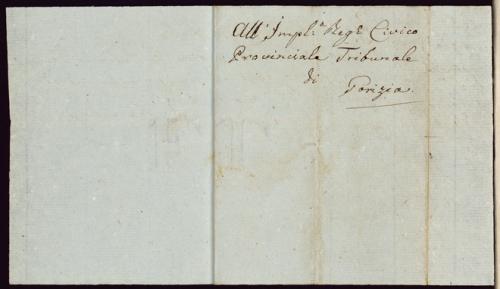 All' Impl.e Reg.o Civico
Provinciale Tribunale
di
Gorizia.